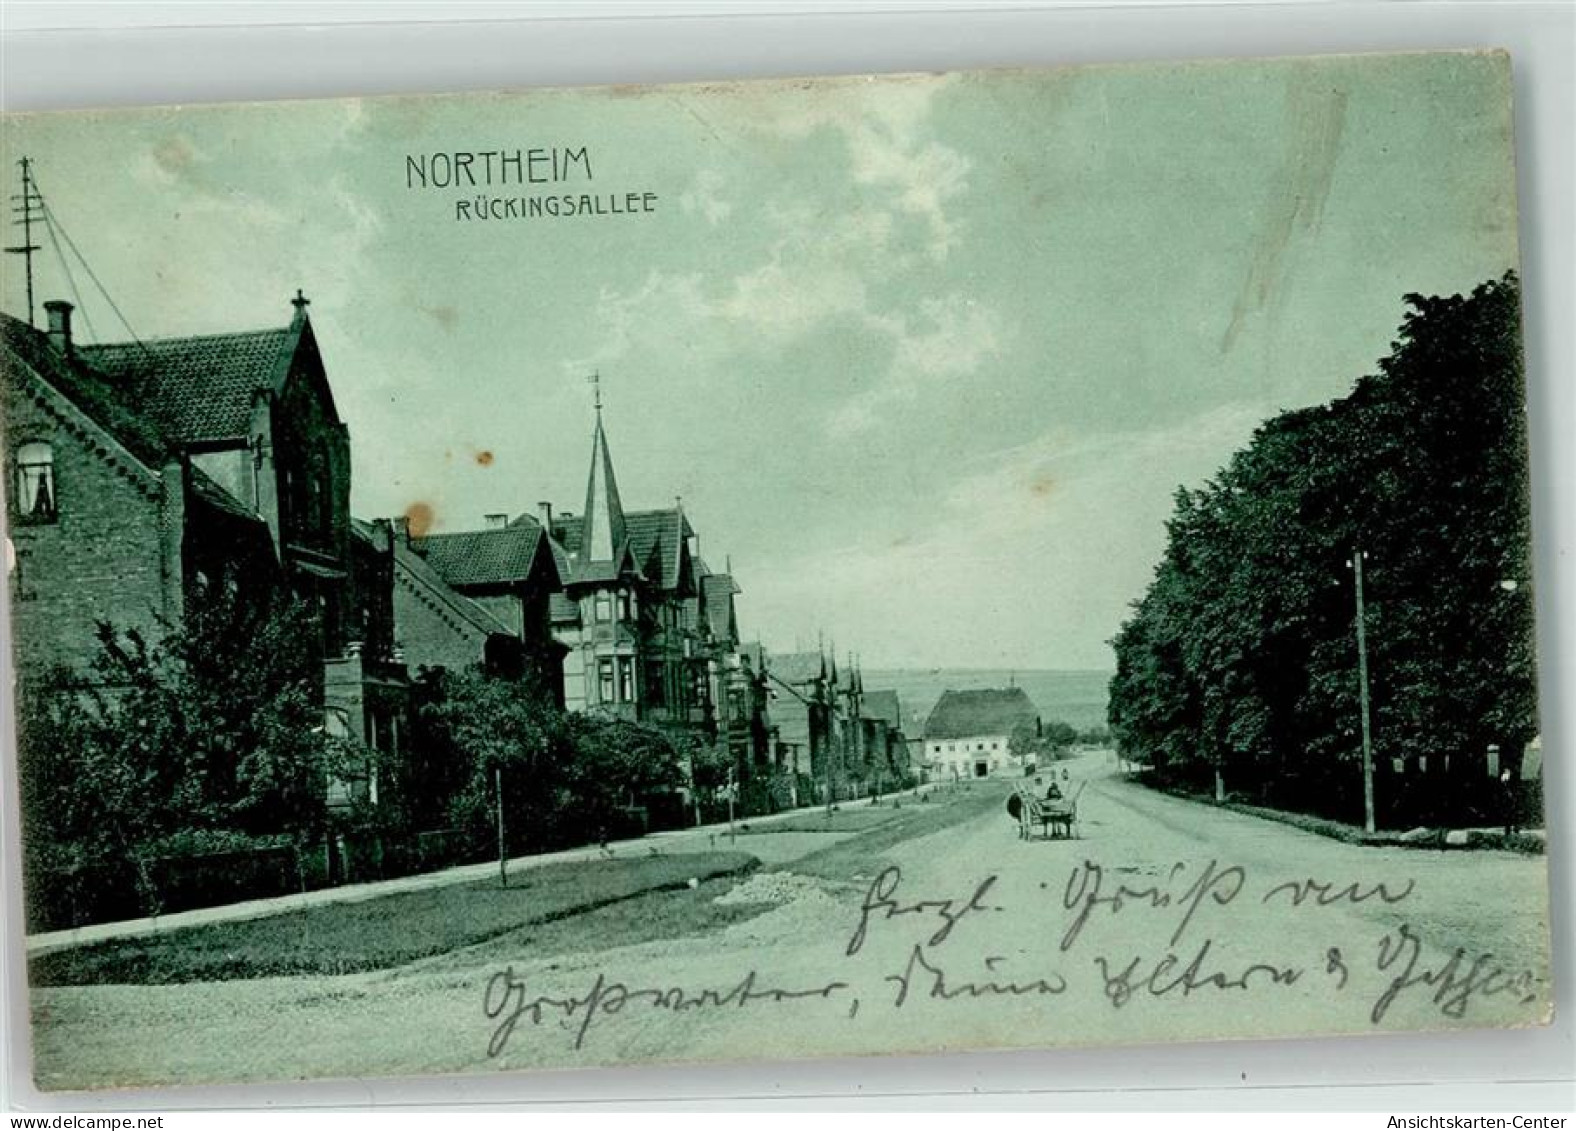 NORTHEIM
RÜCKINGSALLEE
Herzl. Gruß von
Großvater, Deine Eltern & Geschw.
delcampe.net
Ansichtskarten-Center